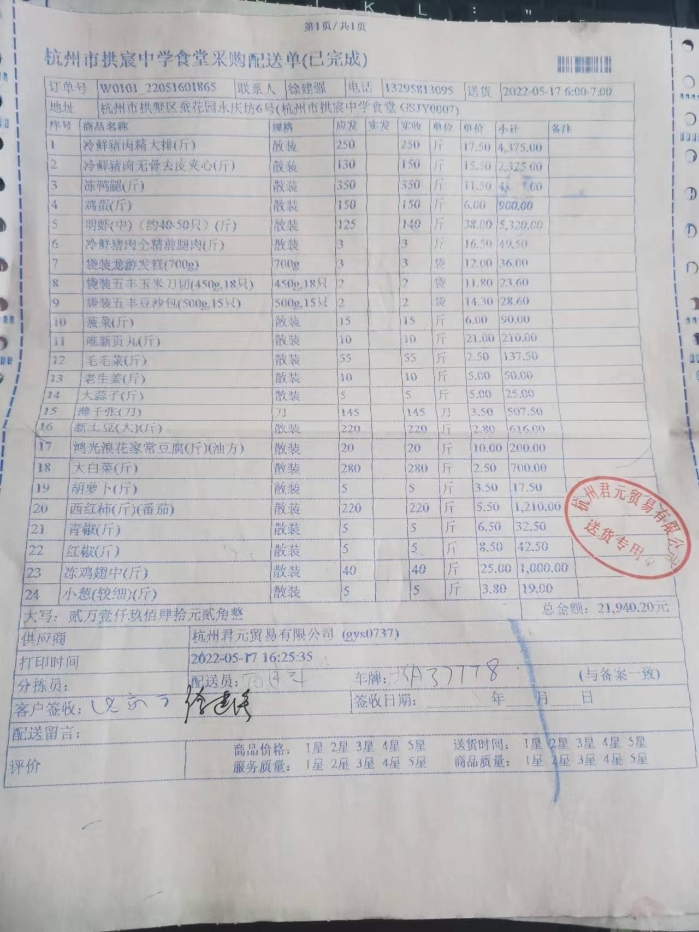 第1页/共1页
杭州市拱宸中学食堂采购配送单(已完成)
订单号 W0101_22051601865 联系人 徐建强 电话 13295813095 送货 2022-05-17 6:00-7:00
地址 杭州市拱墅区蚕花园永庆坊6号(杭州市拱宸中学食堂 GSJY0007)
序号 商品名称 规格 应发 实发 实收 单位 单价 小计 备注
1 冷鲜猪肉精大排(斤) 散装 250 250 斤 17.50 4,375.00
2 冷鲜猪肉无骨去皮夹心(斤) 散装 150 150 斤 15.50 2,325.00
3 冻鸭腿(斤) 散装 350 350 斤 11.50
4 鸡蛋(斤) 散装 150 150 斤 6.00 900.00
5 明虾(中)(约40-50只)(斤) 散装 125 140 斤 38.00 5,320.00
6 冷鲜猪肉全精前腿肉(斤) 散装 3 3 斤 16.50 49.50
7 袋装龙游发糕(700g) 700g 3 3 袋 12.00 36.00
8 袋装五丰玉米刀切(450g,18只) 450g,18只 2 2 袋 11.80 23.60
9 袋装五丰豆沙包(500g,15只) 500g,15只 2 2 袋 14.30 28.60
10 菠菜(斤) 散装 15 15 斤 6.00 90.00
11 唯新贡丸(斤) 散装 10 10 斤 21.00 210.00
12 毛毛菜(斤) 散装 55 55 斤 2.50 137.50
13 老生姜(斤) 散装 10 10 斤 5.00 50.00
14 大蒜子(斤) 散装 5 5 斤 5.00 25.00
15 薄千张(刀) 刀 145 145 刀 3.50 507.50
16 新土豆(大)(斤) 散装 220 220 斤 2.80 616.00
17 鸿光浪花家常豆腐(斤)(油方) 散装 20 20 斤 10.00 200.00
18 大白菜(斤) 散装 280 280 斤 2.50 700.00
19 胡萝卜(斤) 散装 5 5 斤 3.50 17.50
20 西红柿(斤)(番茄) 散装 220 220 斤 5.50 1,210.00
21 青椒(斤) 散装 5 5 斤 6.50 32.50
22 红椒(斤) 散装 5 5 斤 8.50 42.50
23 冻鸡翅中(斤) 散装 40 40 斤 25.00 1,000.00
24 小葱(较细)(斤) 散装 5 5 斤 3.80 19.00
杭州君元贸易有限公司
送货专用
大写: 贰万壹仟玖佰肆拾元贰角整 总金额: 21,940.20元
供应商 杭州君元贸易有限公司 (gys0737)
打印时间 2022-05-17 16:25:35
分拣员: 配送员: 车牌: A37178 (与备案一致)
客户签收: 签收日期: 年 月 日
配送留言:
评价 商品价格: 1星 2星 3星 4星 5星 送货时间: 1星 2星 3星 4星 5星
服务质量: 1星 2星 3星 4星 5星 商品质量: 1星 2星 3星 4星 5星